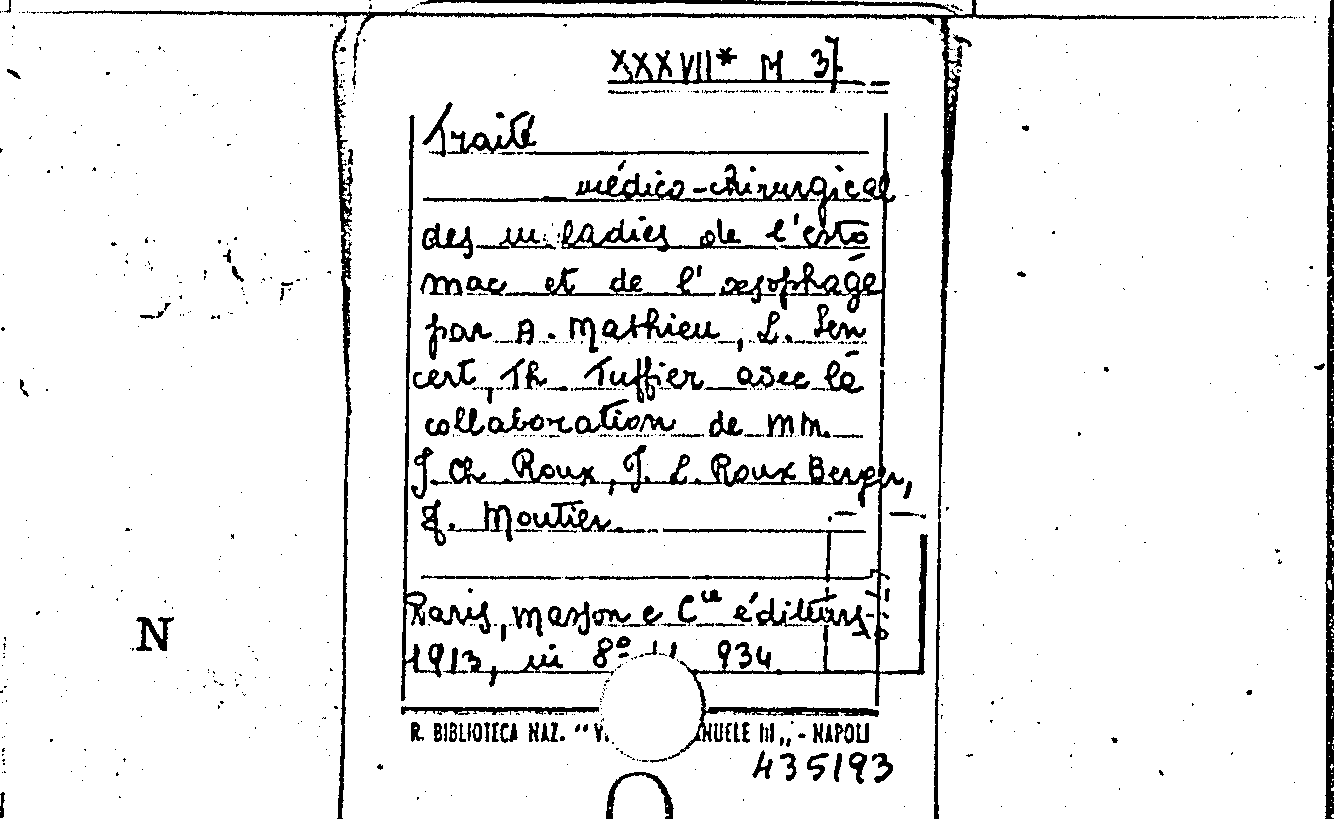 XXXVII* M 37
Traité
médico-chirurgical
des maladies de l'esto
mac et de l'œsophage
par A. Mathieu, L. Sen
cert, Th. Tuffier avec la
collaboration de MM.
J. Ch. Roux, J. L. Roux Berger,
F. Moutier
Paris, Masson e Cie éditeurs
N
1913, in 8º 934
R. BIBLIOTECA NAZ. "V. ANUELE III„ - NAPOLI
435193